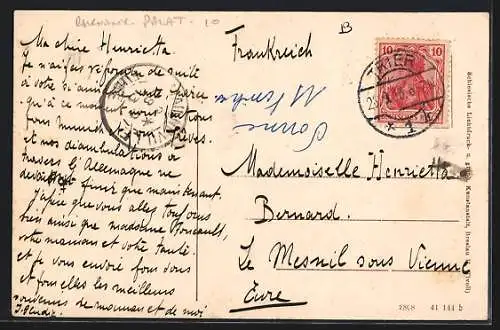 PALAT. 10
B
Ma chère Henrietta
Je n'ai pas répondu de suite
à votre si aimable carte parce
qu'à ce moment nous étions
tous Munich Trèves.
et nos déambulations à
travers l'Allemagne ne
devaient finir que maintenant.
J'espère que vous allez toujours
bien ainsi que madame
votre maman et votre tante.
et je vous envoie pour vous
et pour elles les meilleurs
souvenirs de maman et de moi
Frankreich
10 10
TRIER
* 1 *
Mademoiselle Henrietta
Bernard.
Le Mesnil sous Vienne
Eure
Schlesische Lichtdruck- u. graph. Kunstanstalt, Breslau
41 144 b